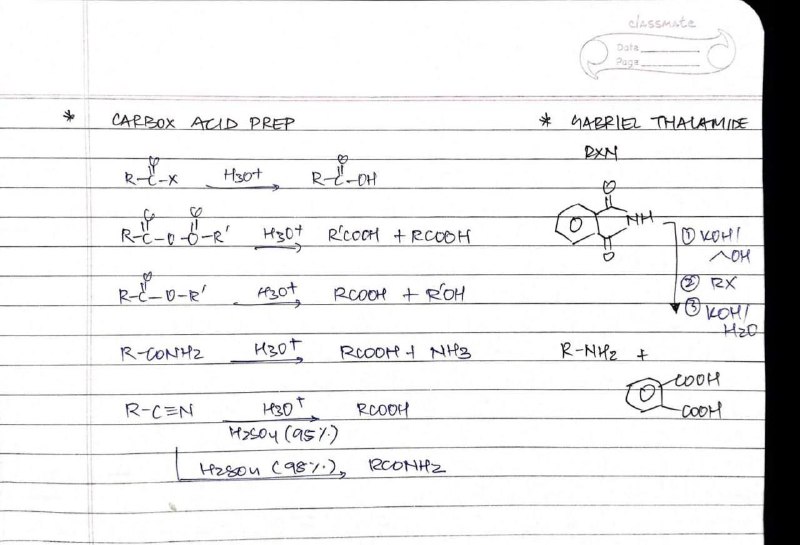 classmate
Date
Page
* CARBOX ACID PREP
R-C(=O)-X H3O+ R-C(=O)-OH
R-C(=O)-O-C(=O)-R' H3O+ R'COOH + RCOOH
R-C(=O)-O-R' H3O+ RCOOH + R'OH
R-CONH2 H3O+ RCOOH + NH3
R-C≡N H3O+ RCOOH
H2SO4 (95%)
H2SO4 (98%) RCONH2
* GABRIEL THALAMIDE
RXN
O
NH
O
① KOH/
OH
② RX
③ KOH/
H2O
R-NH2 +
COOH
COOH